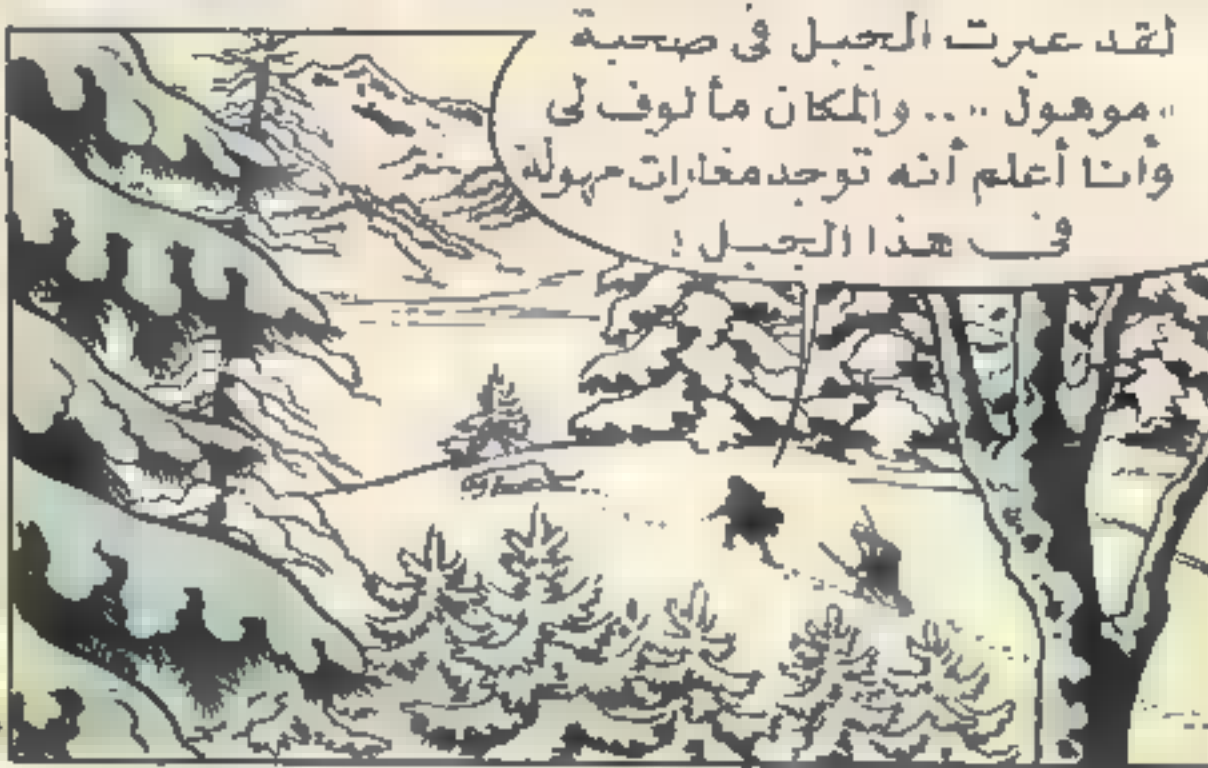 لقد عبرت الجبل فى صحبة
"موهول" .. والمكان مألوف لى
وأنا أعلم أنه توجد مغارات مهولة
فى هذا الجبل !